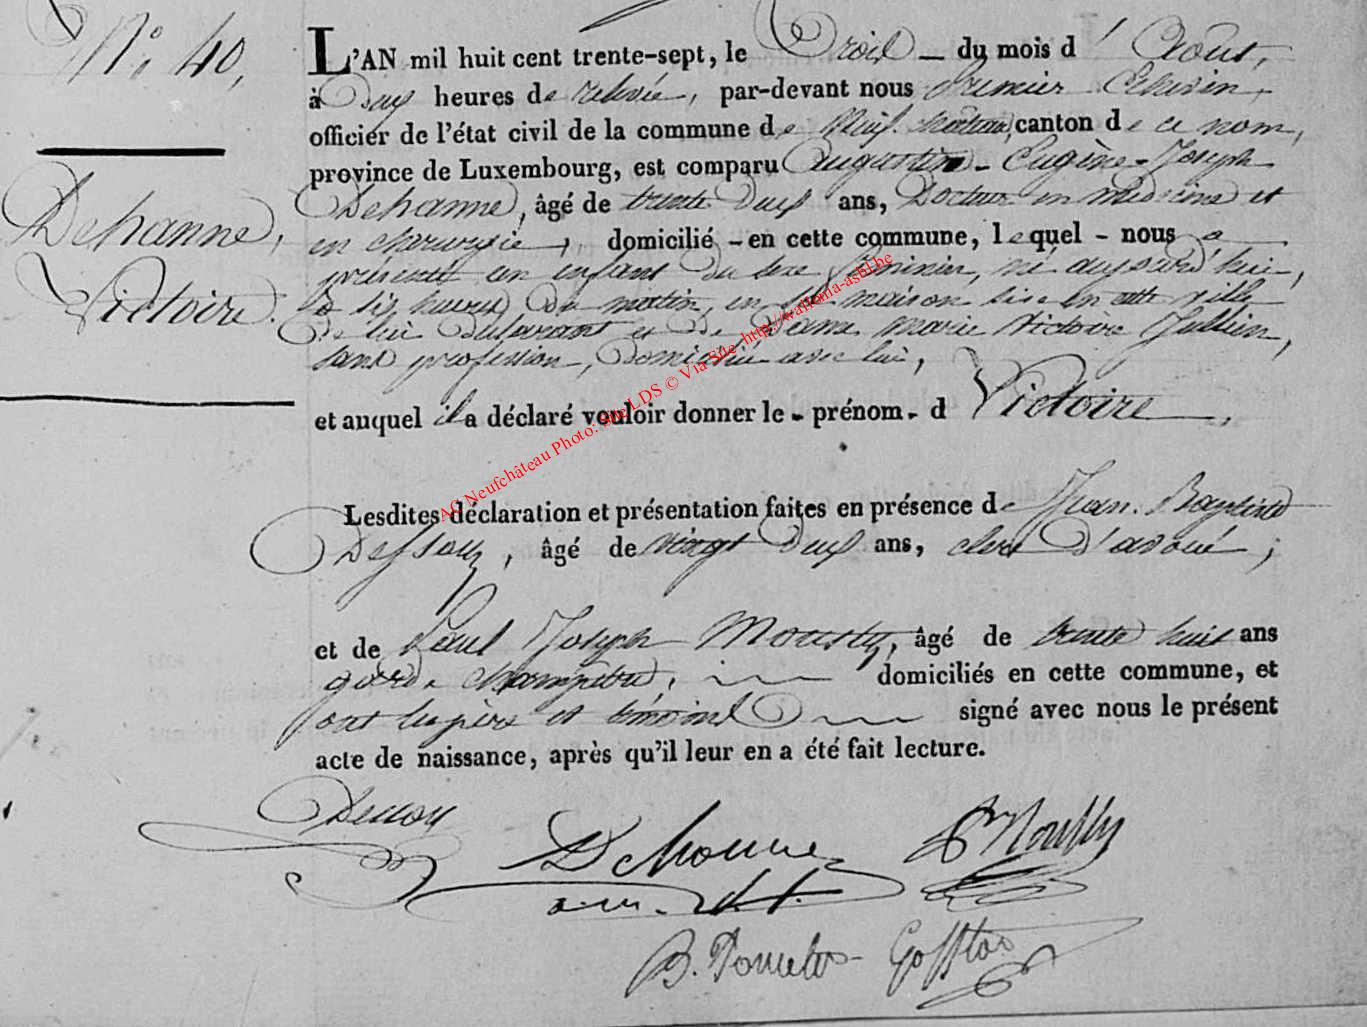 N.° 40,
Dehanne,
Victoire.
L'AN mil huit cent trente-sept, le Trois — du mois d'Août,
à Deux heures de relevée, par-devant nous Premier Echevin,
officier de l'état civil de la commune de Neufchateau, canton de ce nom,
province de Luxembourg, est comparu Augustin - Eugène - Joseph
Dehanne, âgé de trente Deux ans, Docteur en medecine et
en chirurgie, domicilié - en cette commune, lequel - nous a
présenté un enfant du sexe féminin, né aujourd'hui,
à six heures du matin, en sa maison sise en cette ville
de lui Déclarant et de Dame Marie Victoire Jullien,
sans profession, Domiciliée avec lui,
et auquel il a déclaré vouloir donner le - prénom - d Victoire,
Lesdites déclaration et présentation faites en présence de Jean Baptiste
Dessoy, âgé de vingt Deux ans, clerc D'avoué,
et de Paul Joseph Mousty, âgé de trente huit ans
garde champêtre, domiciliés en cette commune, et
ont les père et témoins signé avec nous le présent
acte de naissance, après qu'il leur en a été fait lecture.
Dessoy
Dehanne
P J Mousty
B.
AC Neufchâteau Photo: Site LDS © Via Site http://wallonia-asbl.be